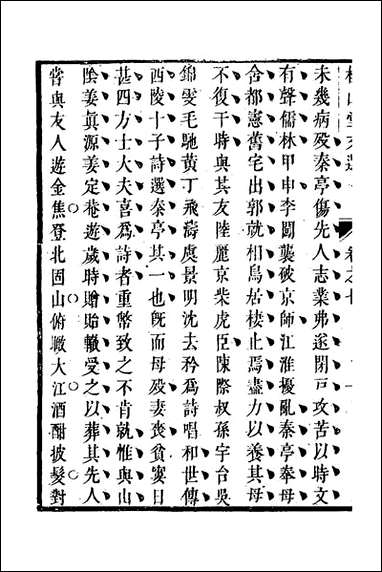 未幾病歿秦亭傷先人志業弗遂閉戸攻苦以時文
有聲儒林甲申李闖襲破京師江淮擾亂秦亭奉母
舍都憲舊宅出郭就相鳥居棲止焉盡力以養其母
不復干時與其友陸麗京柴虎臣陳際叔孫宇台吳
錦雯毛馳黃丁飛濤虞景明沈去矜爲詩唱和世傳
西陵十子詩選秦亭其一也旣而母歿妻喪貧窶日
甚四方士大夫喜爲詩者重幣致之不肯就惟與山
陰姜眞源姜定菴遊歲時贈貽輙受之以葬其先人
嘗與友人遊金焦登北固山俯瞰大江酒酣披髮對